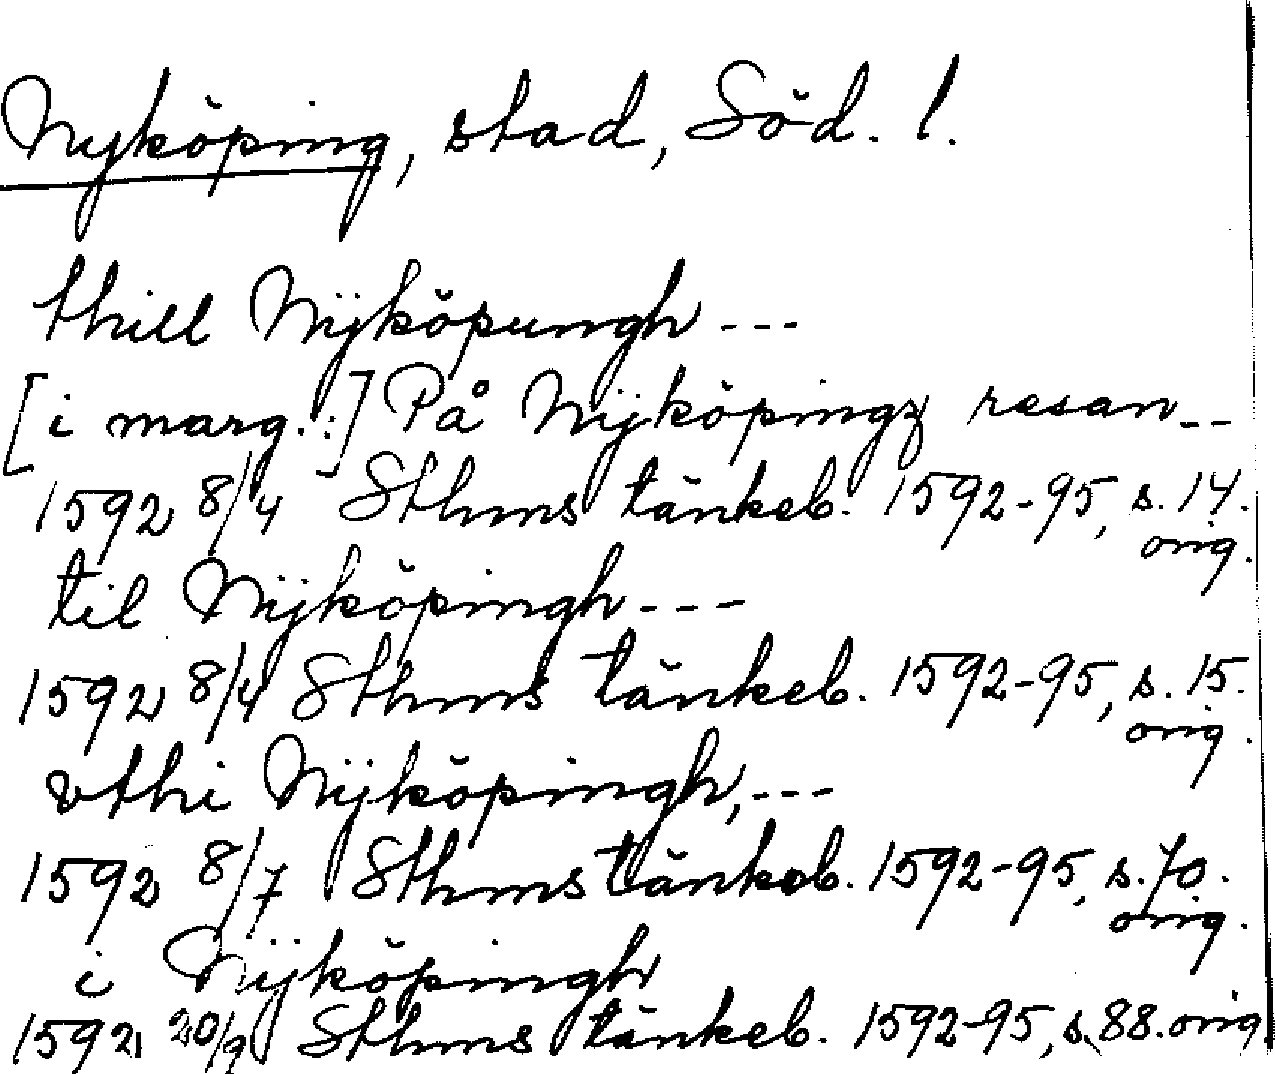 Nyköping, stad, Söd. l.
thill Nÿköpungh ---
[i marg.:] På Nÿköpingz resan --
1592 8/4 Sthms tänkeb. 1592-95, s. 14.
orig.
til Nÿköpingh ---
1592 8/4 Sthms tänkeb. 1592-95, s. 15.
orig.
vthi Nÿköpingh, ---
1592 8/7 Sthms tänkeb. 1592-95, s. 70.
orig.
i Nÿköpingh
1592 20/9 Sthms tänkeb. 1592-95, s. 88. orig